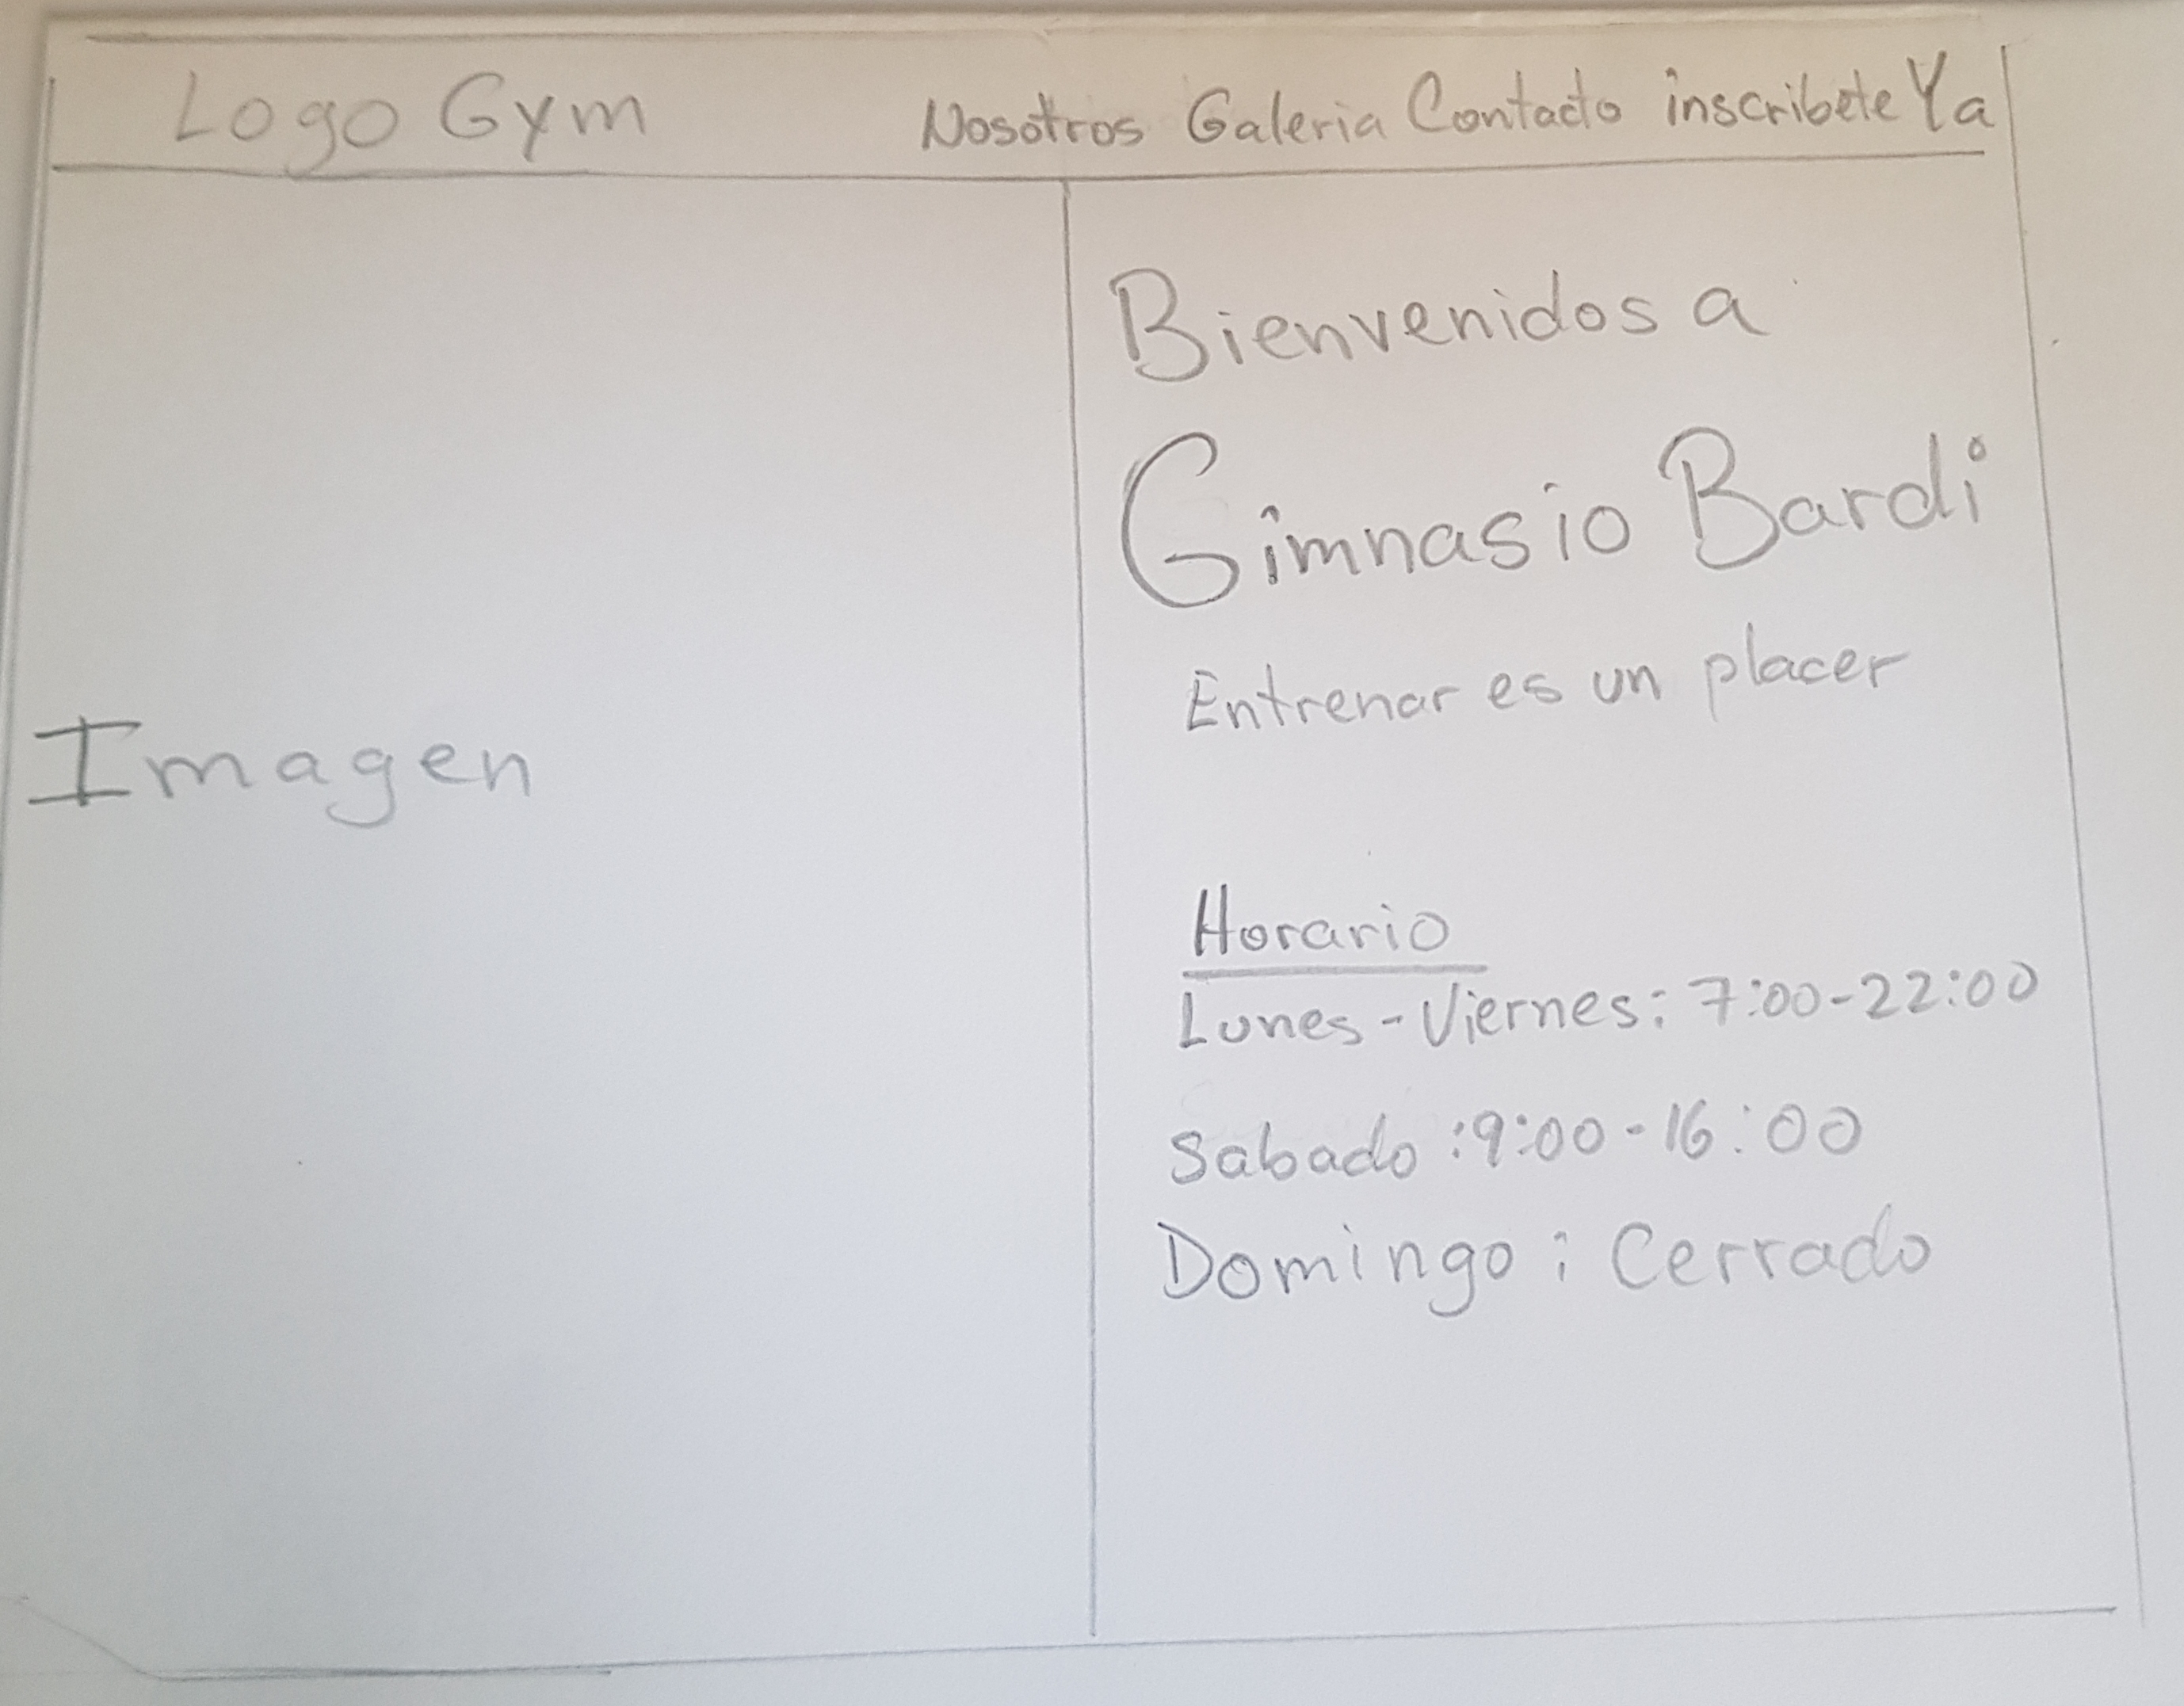 Logo Gym Nosotros Galeria Contacto inscribete Ya
Bienvenidos a
Gimnasio Bardi
Entrenar es un placer
Imagen
Horario
Lunes - Viernes: 7:00-22:00
Sabado : 9:00 - 16:00
Domingo : Cerrado